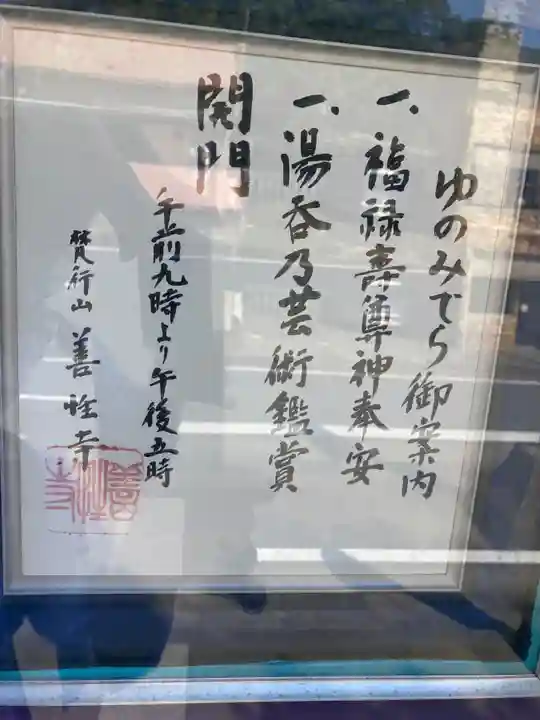 ゆのみでら御案内
一、福禄寿尊神奉安
一、湯呑乃芸術鑑賞
開門
午前九時より午後五時
梵行山 善性寺
善性寺